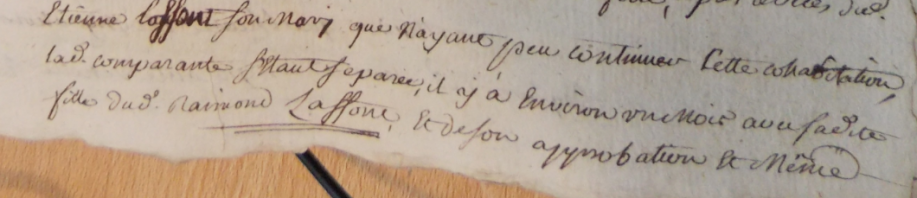 Etienne laffont son Mary que N'ayant peu continuer Cette cohabitation,
lad. comparante s'étant separée, il y a Environ un Mois avec sa dite
fille dud. Raimond Laffont, Et de son approbation Et Même